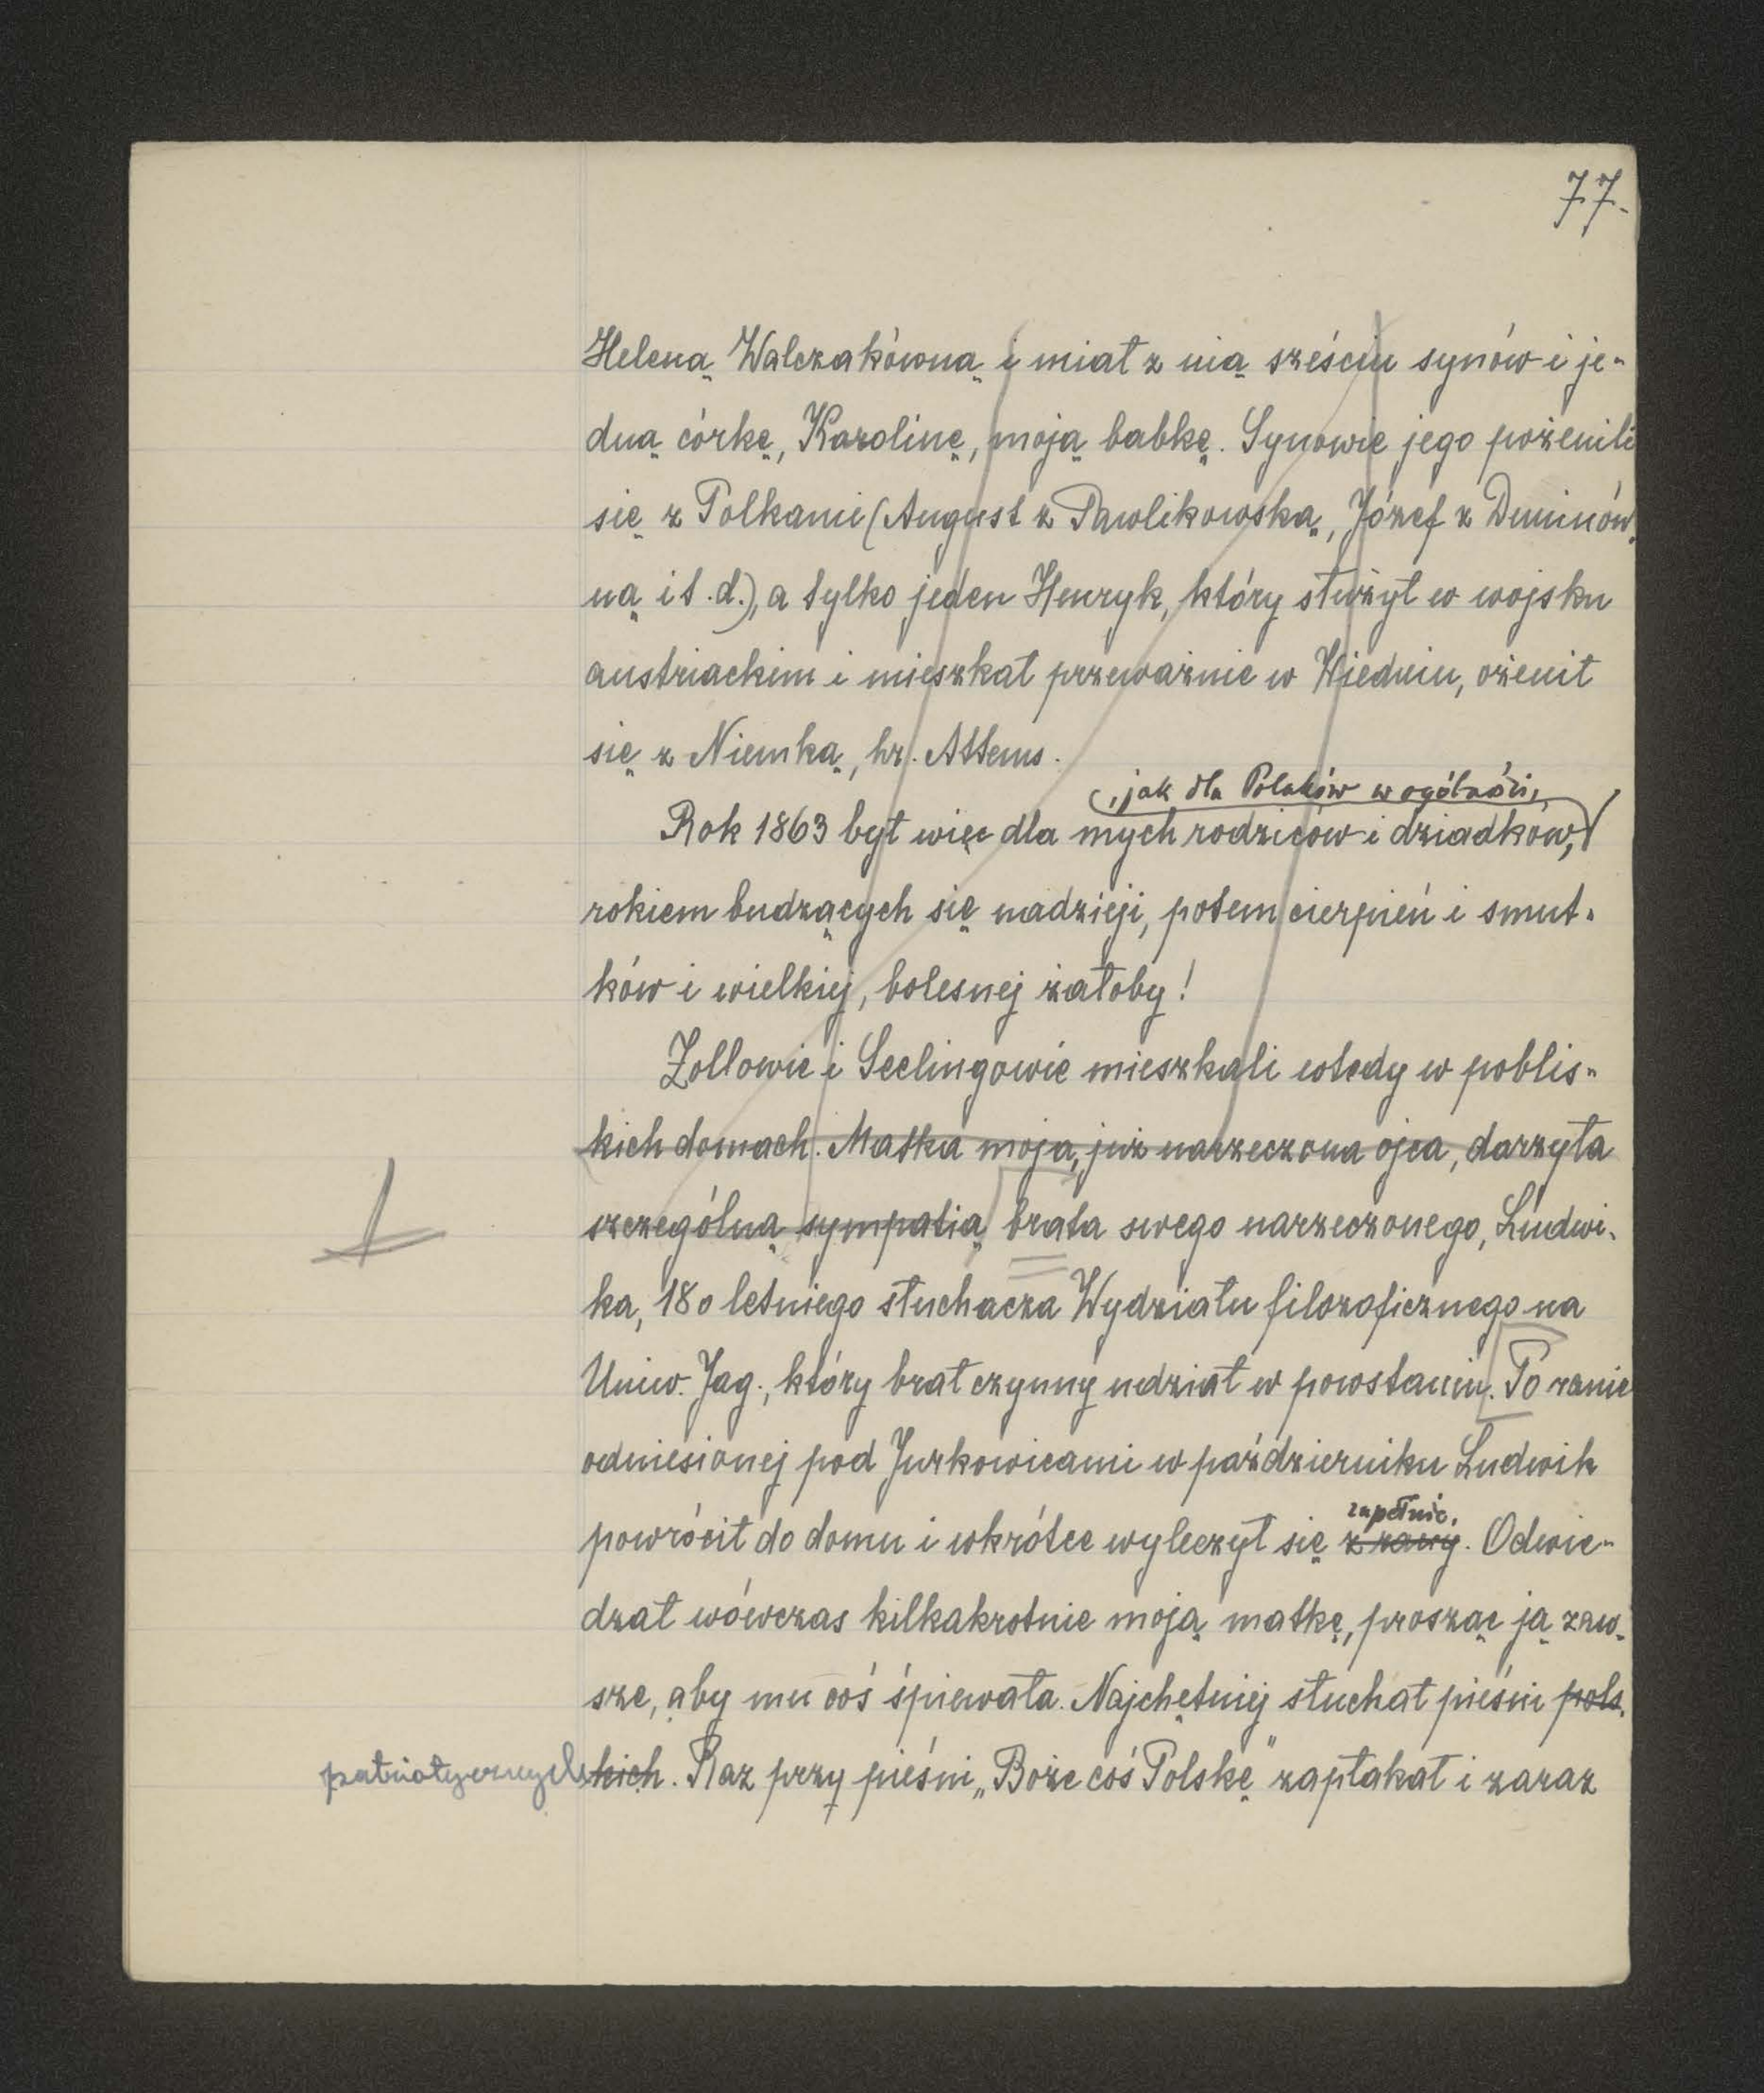 77.
Heleną Walczakówną i miał z nią sześciu synów i je-
dną córkę, Karolinę, moją babkę. Synowie jego pożenili
się z Polkami (August z Pawlikowską, Józef z Duninów-
ną i t.d.), a tylko jeden Henryk, który służył w wojsku
austriackim i mieszkał przeważnie w Wiedniu, ożenił
się z Niemką, hr. Attems.
, jak dla Polaków w ogólności,
Rok 1863 był więc dla mych rodziców i dziadków,
rokiem budzących się nadzieji, potem cierpień i smut-
ków i wielkiej, bolesnej żałoby!
Zollowie i Seelingowie mieszkali wtedy w poblis-
kich domach. Matka moja, już narzeczona ojca, darzyła
szczególną sympatią brata swego narzeczonego, Ludwi-
ka, 18o letniego słuchacza Wydziału filozoficznego na
Uniw. Jag., który brał czynny udział w powstaniu. Po ranie
odniesionej pod Jurkowicami w październiku Ludwik
zupełnie.
powrócił do domu i wkrótce wyleczył się z rany. Odwie-
dzał wówczas kilkakrotnie moją matkę, prosząc ją zaw-
sze, aby mu coś śpiewała. Najchętniej słuchał pieśni pols-
patriotycznych kich. Raz przy pieśni „Boże coś Polskę" zapłakał i zaraz